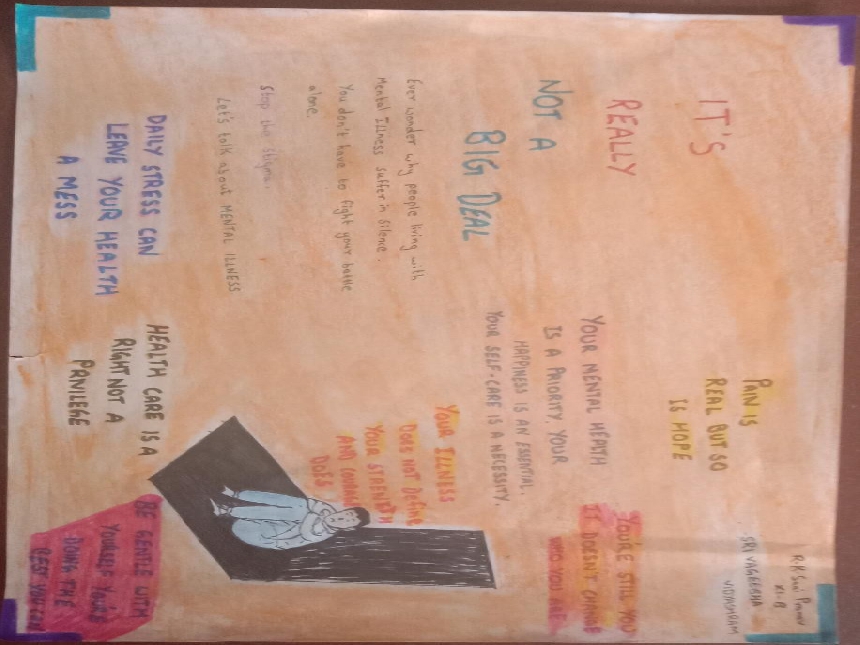 IT'S
REALLY
NOT A
BIG DEAL
Ever wonder why people living with
Mental Illness suffer in silence.
You don't have to fight your battle
alone.
Stop the stigma.
Let's talk about MENTAL ILLNESS
DAILY STRESS CAN
LEAVE YOUR HEALTH
A MESS
PAIN IS
REAL BUT SO
IS HOPE
YOUR MENTAL HEALTH
IS A PRIORITY. YOUR
HAPPINESS IS AN ESSENTIAL.
YOUR SELF-CARE IS A NECESSITY.
YOUR ILLNESS
DOES NOT DEFINE
YOUR STRENGTH
AND
DOES
HEALTH CARE IS A
RIGHT NOT A
PRIVILEGE
XI-B
SRI VAGEESHA
VIDYASHRAM
YOU'RE STILL YOU
IT DOESN'T CHANGE
WHO YOU ARE
BE GENTLE WITH
YOURSELF YOU'RE
DOING THE
BEST YOU CAN